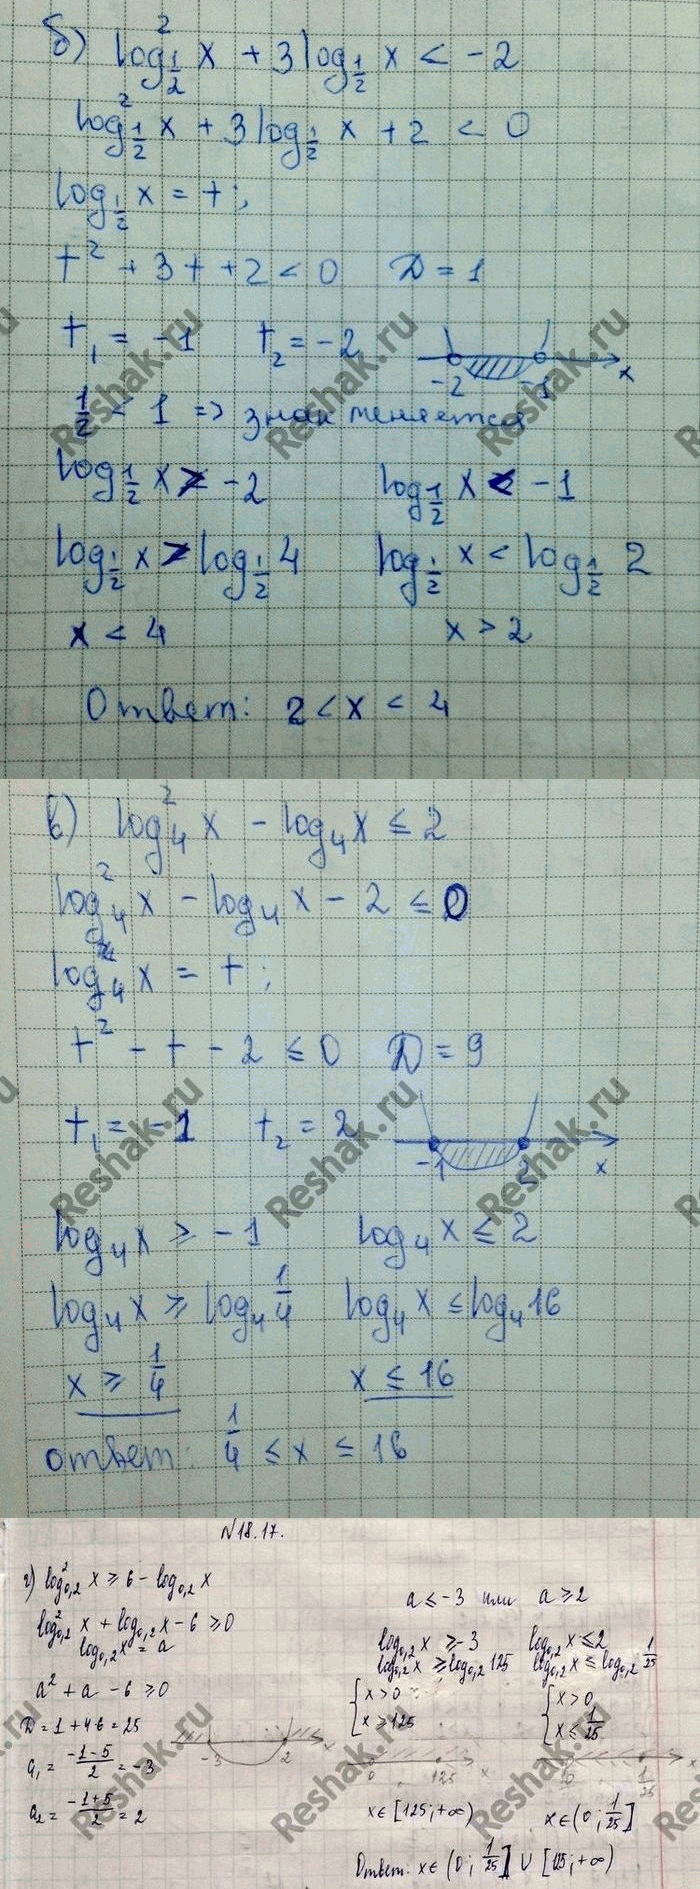 б) log²_{1/2} x + 3 log_{1/2} x < -2
log²_{1/2} x + 3 log_{1/2} x + 2 < 0
log_{1/2} x = t;
t² + 3t + 2 < 0 D = 1
t₁ = -1 t₂ = -2
-2 -1 x
1/2 < 1 => знак меняется
log_{1/2} x > -2 log_{1/2} x < -1
log_{1/2} x > log_{1/2} 4 log_{1/2} x < log_{1/2} 2
x < 4 x > 2
Ответ: 2 < x < 4
в) log²₄ x - log₄ x ≤ 2
log²₄ x - log₄ x - 2 ≤ 0
log₄ x = t;
t² - t - 2 ≤ 0 D = 9
t₁ = -1 t₂ = 2
-1 2 x
log₄ x ≥ -1 log₄ x ≤ 2
log₄ x ≥ log₄ 1/4 log₄ x ≤ log₄ 16
x ≥ 1/4 x ≤ 16
ответ: 1/4 ≤ x ≤ 16
N18.17.
г) log²_{0,2} x ≥ 6 - log_{0,2} x
log²_{0,2} x + log_{0,2} x - 6 ≥ 0
log_{0,2} x = a
a² + a - 6 ≥ 0
D = 1 + 4·6 = 25
a₁ = (-1-5)/2 = -3
a₂ = (-1+5)/2 = 2
-3 2 x
a ≤ -3 или a ≥ 2
log_{0,2} x ≥ -3 log_{0,2} x ≤ 2
log_{0,2} x ≥ log_{0,2} 125 log_{0,2} x ≤ log_{0,2} 1/25
{ x > 0 { x > 0
x ≥ 125 x ≤ 1/25
0 125 x 0 1/25 x
x ∈ [125; +∞) x ∈ (0; 1/25]
Ответ: x ∈ (0; 1/25] ∪ [125; +∞)
Reshak.ru
Reshak.ru
Reshak.ru
Reshak.ru
Reshak.ru
Reshak.ru
Reshak.ru
Reshak.ru
Reshak.ru